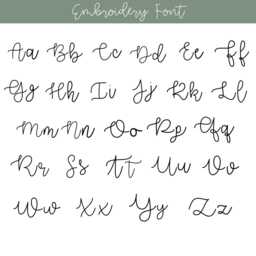 Embroidery Font
Aa Bb Cc Dd Ee Ff
Gg Hh Ii Jj Kk Ll
Mm Nn Oo Pp Qq
Rr Ss Tt Uu Vv
Ww Xx Yy Zz